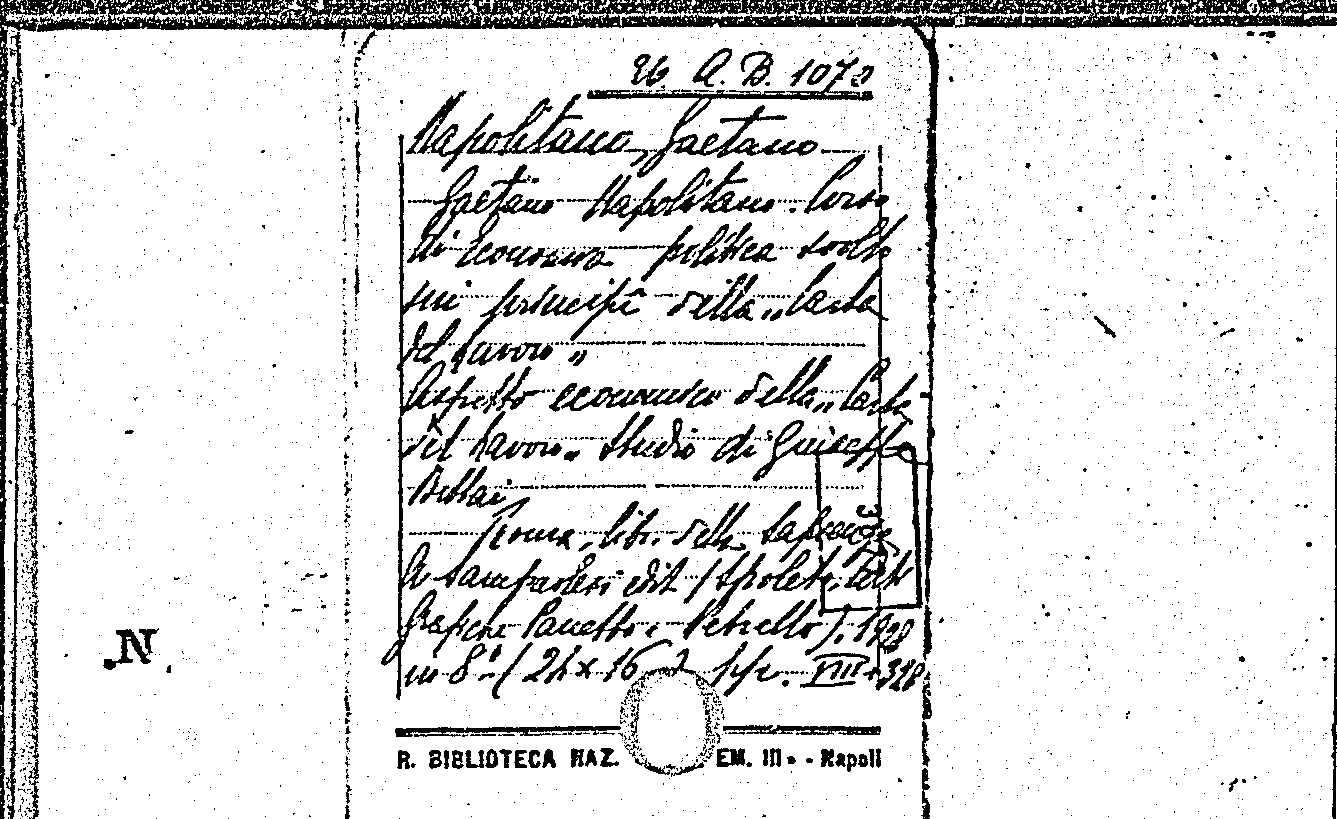 R. A. B. 1072
Napolitano, Gaetano
Gaetano Napolitano. Corso
di Economia politica svolto
sui principî della „Carta
del lavoro„
Aspetto economico della „Carta
del Lavoro„ Studio di Giuseppe
Bottai
Roma, libr. della Sapienza
A Sampaolesi edit (Spoleto, Arti
Grafiche Panetto e Petrelli). 1928
in 8° (24 x 16 pp. VIII+318
N.
R. BIBLIOTECA NAZ. EM. III - Napoli